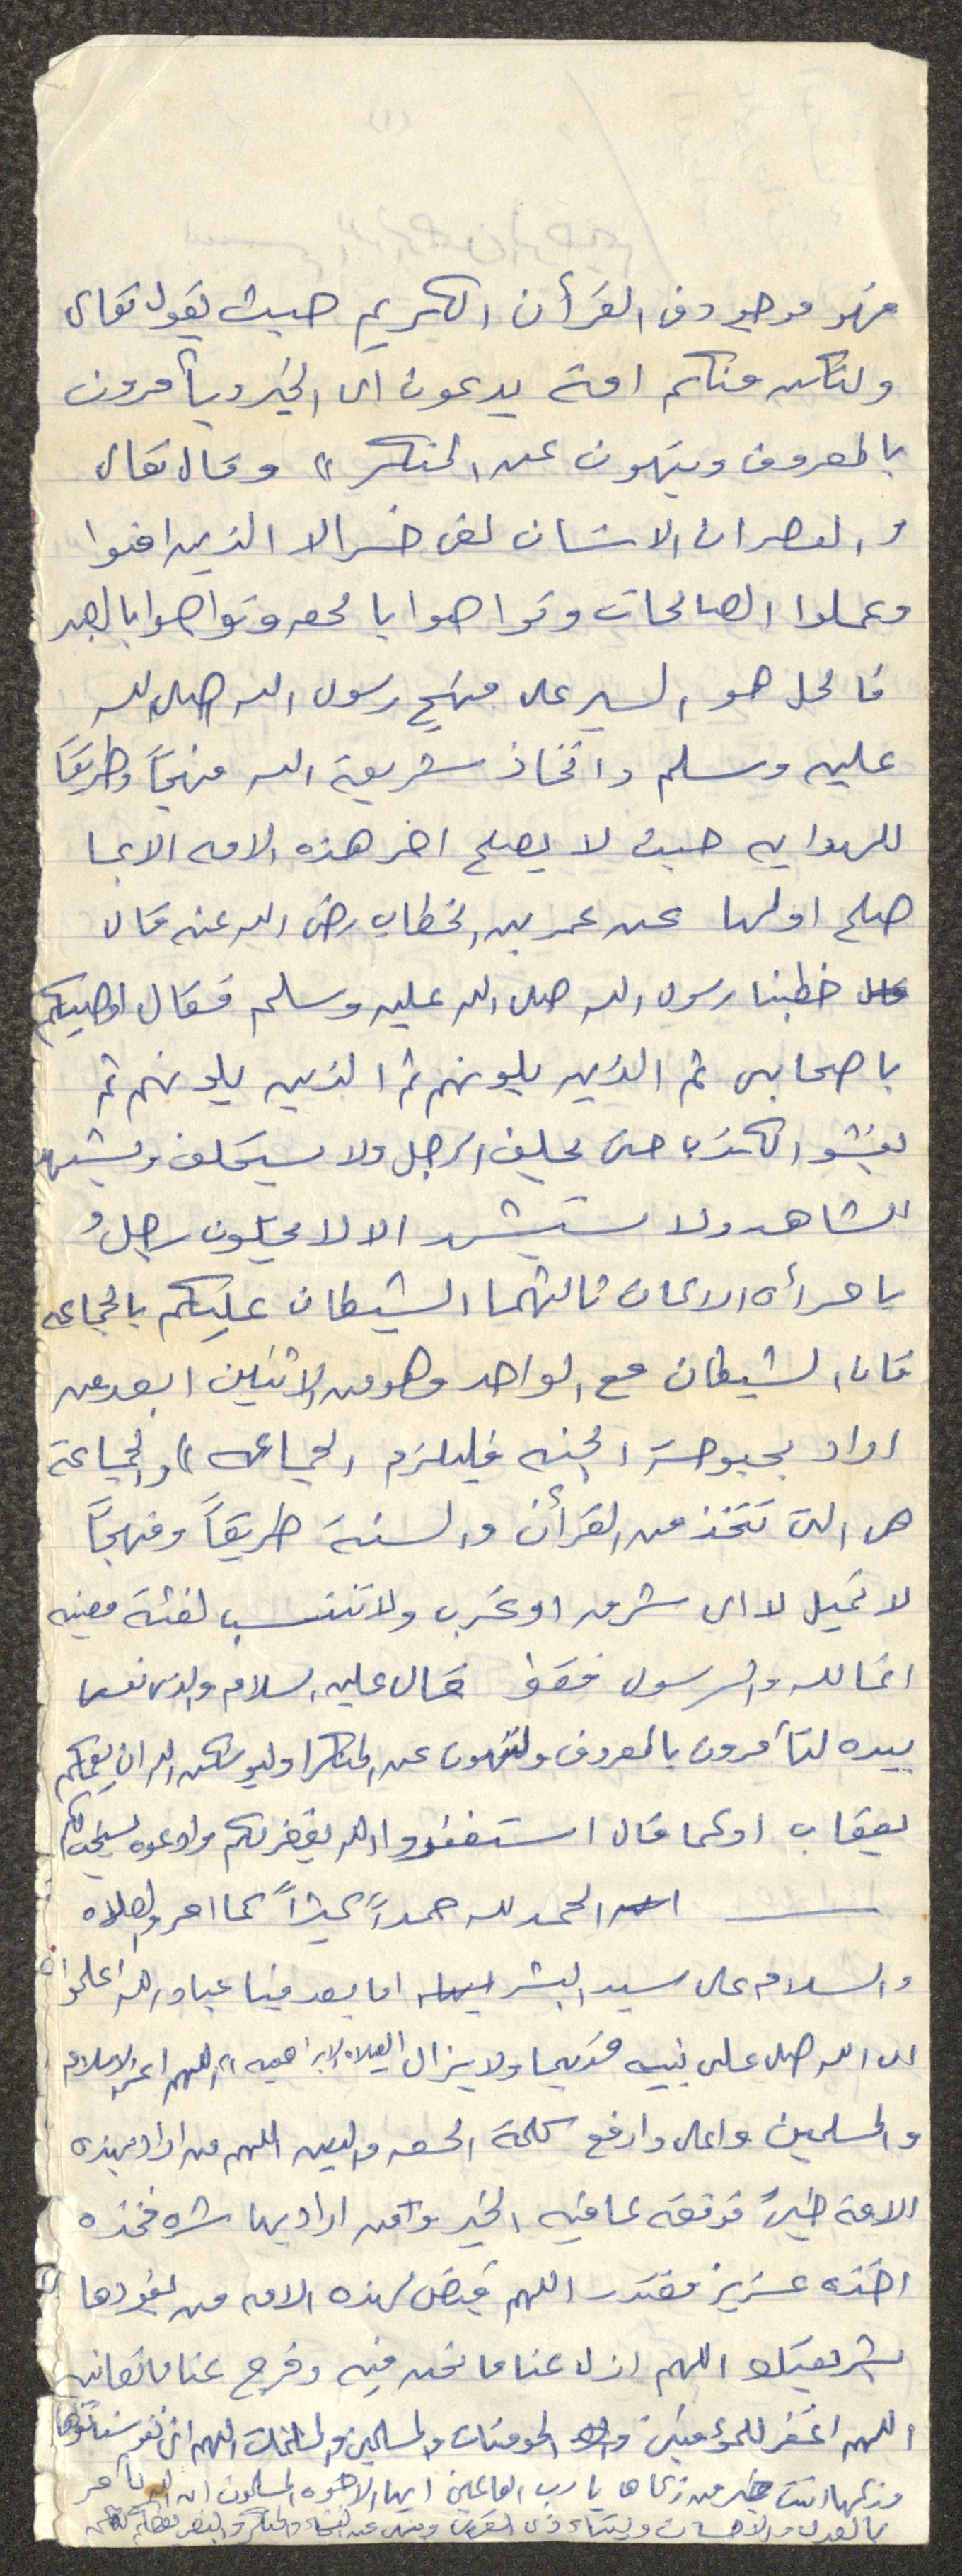 فهو موجود في القرأن الكريم حيث يقول تعالى
ولتكن منكم امة يدعون الى الخير ويأمرون
بالمعروف وينهون عن المنكر" وقال تعالى
والعصر ان الانسان لفي خسر الا الذين امنوا
وعملوا الصالحات وتواصوا بالحق وتواصوا بالصبر
فالحل هو السير على منهج رسول الله صلى الله
عليه وسلم واتخاذ شريعة الله منهجاً وطريقاً
للهدايه حيث لا يصلح اخر هذه الامه الا بما
صلح اولها عن عمر بن الخطاب رضى الله عنه قال
خطبنا رسول الله صلى الله عليه وسلم فقال اوصيكم
باصحابى ثم الذين يلونهم ثم الذين يلونهم ثم
يفشو الكذب حتى يحلف الرجل ولا يستحلف ويشهد
الشاهد ولا يستشهد الا لا يخلون رجلُ
بامرأه الا كان ثالثهما الشيطان عليكم بالجماعه
فان الشيطان مع الواحد وهو من الاثنين ابعد من
اراد بحبوحة الجنه فليلزم الجماعه" والجماعة
هى التى تتخذ من القرأن والسنة طريقاً ومنهجاً
لا تميل لا الى شرق او غرب ولا تنتسب لفئة معينه
انما لله والرسول فقط قال عليه السلام والذى نفسى
بيده لتأمرون بالمعروف ولتنهون عن المنكر او ليوشكن الله ان يعمكم
بعقاب او كما قال استغفروا الله يغفر لكم وادعوه يستجب لكم
الحمد لله حمداً كثيراً كما امر والصلاه
والسلام على سيد البشر اما بعد فيا عباد الله اعلموا
ان الله صلى على نبيه قديما ولا يزال الصلاه الابراهيميه" اللهم اعز الاسلام
والمسلمين واعلى وارفع كلمة الحق والدين اللهم من اراد بهذه
الامة خيراً فوفقه لما فيه الخير ومن اراد بها شره فخذه
اخذ عزيز مقتدر اللهم قيض لهذه الامه من يقودها
بشريعتك اللهم ازل عنا ما نحن فيه وفرج عنا ما نعانيه
اللهم اغفر للمؤمنين والمؤمنات والمسلمين والمسلمات اللهم اتى نفوسنا تقواها
وزكها انت خير من زكاها يا رب العالمين ايها الاخوه المسلمون ان الله يأمر
بالعدل والاحسان وايتاء ذى القربى وينهى عن الفحشاء والمنكر والبغى يعظكم لعلكم